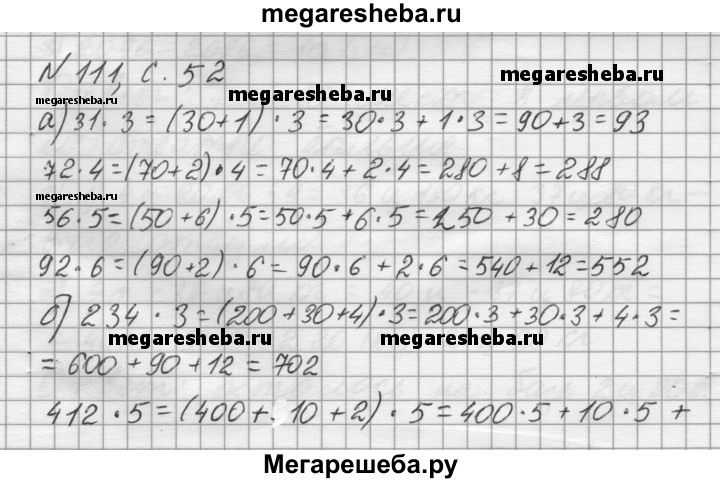 megaresheba.ru
N 111, с. 52
megaresheba.ru
megaresheba.ru
megaresheba.ru
а) 31·3 = (30+1)·3 = 30·3 + 1·3 = 90+3 = 93
72·4 = (70+2)·4 = 70·4 + 2·4 = 280 + 8 = 288
megaresheba.ru
56·5 = (50+6)·5 = 50·5 + 6·5 = 250 + 30 = 280
92·6 = (90+2)·6 = 90·6 + 2·6 = 540 + 12 = 552
б) 234·3 = (200+30+4)·3 = 200·3 + 30·3 + 4·3 =
megaresheba.ru
megaresheba.ru
= 600 + 90 + 12 = 702
412·5 = (400 + 10 + 2)·5 = 400·5 + 10·5 +
Мегарешеба.ру